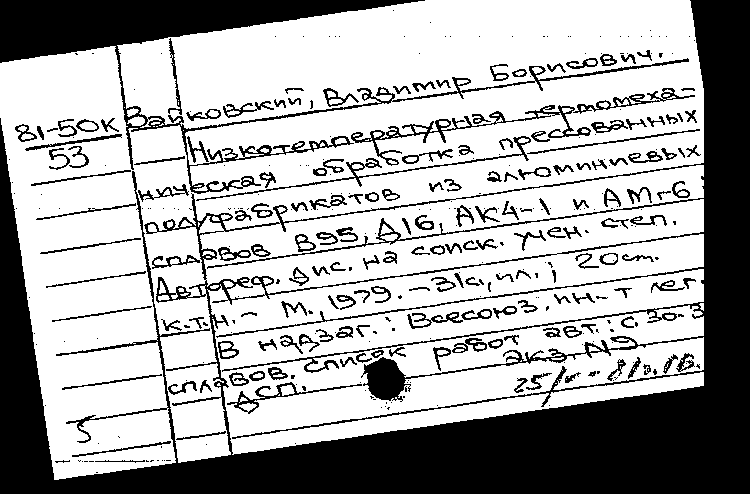 81-50К
53
Зайковский, Владимир Борисович.
Низкотемпературная термомеха-
ническая обработка прессованных
полуфабрикатов из алюминиевых
сплавов В95, Д16, АК4-1 и АМг6:
Автореф. дис. на соиск. учен. степ.
к.т.н. - М., 1979. - 31с, ил.; 20см.
В надзаг.: Всесоюз. ин-т лег.
сплавов. Список работ авт.: с. 30-3
ДСП. экз. №9.
5